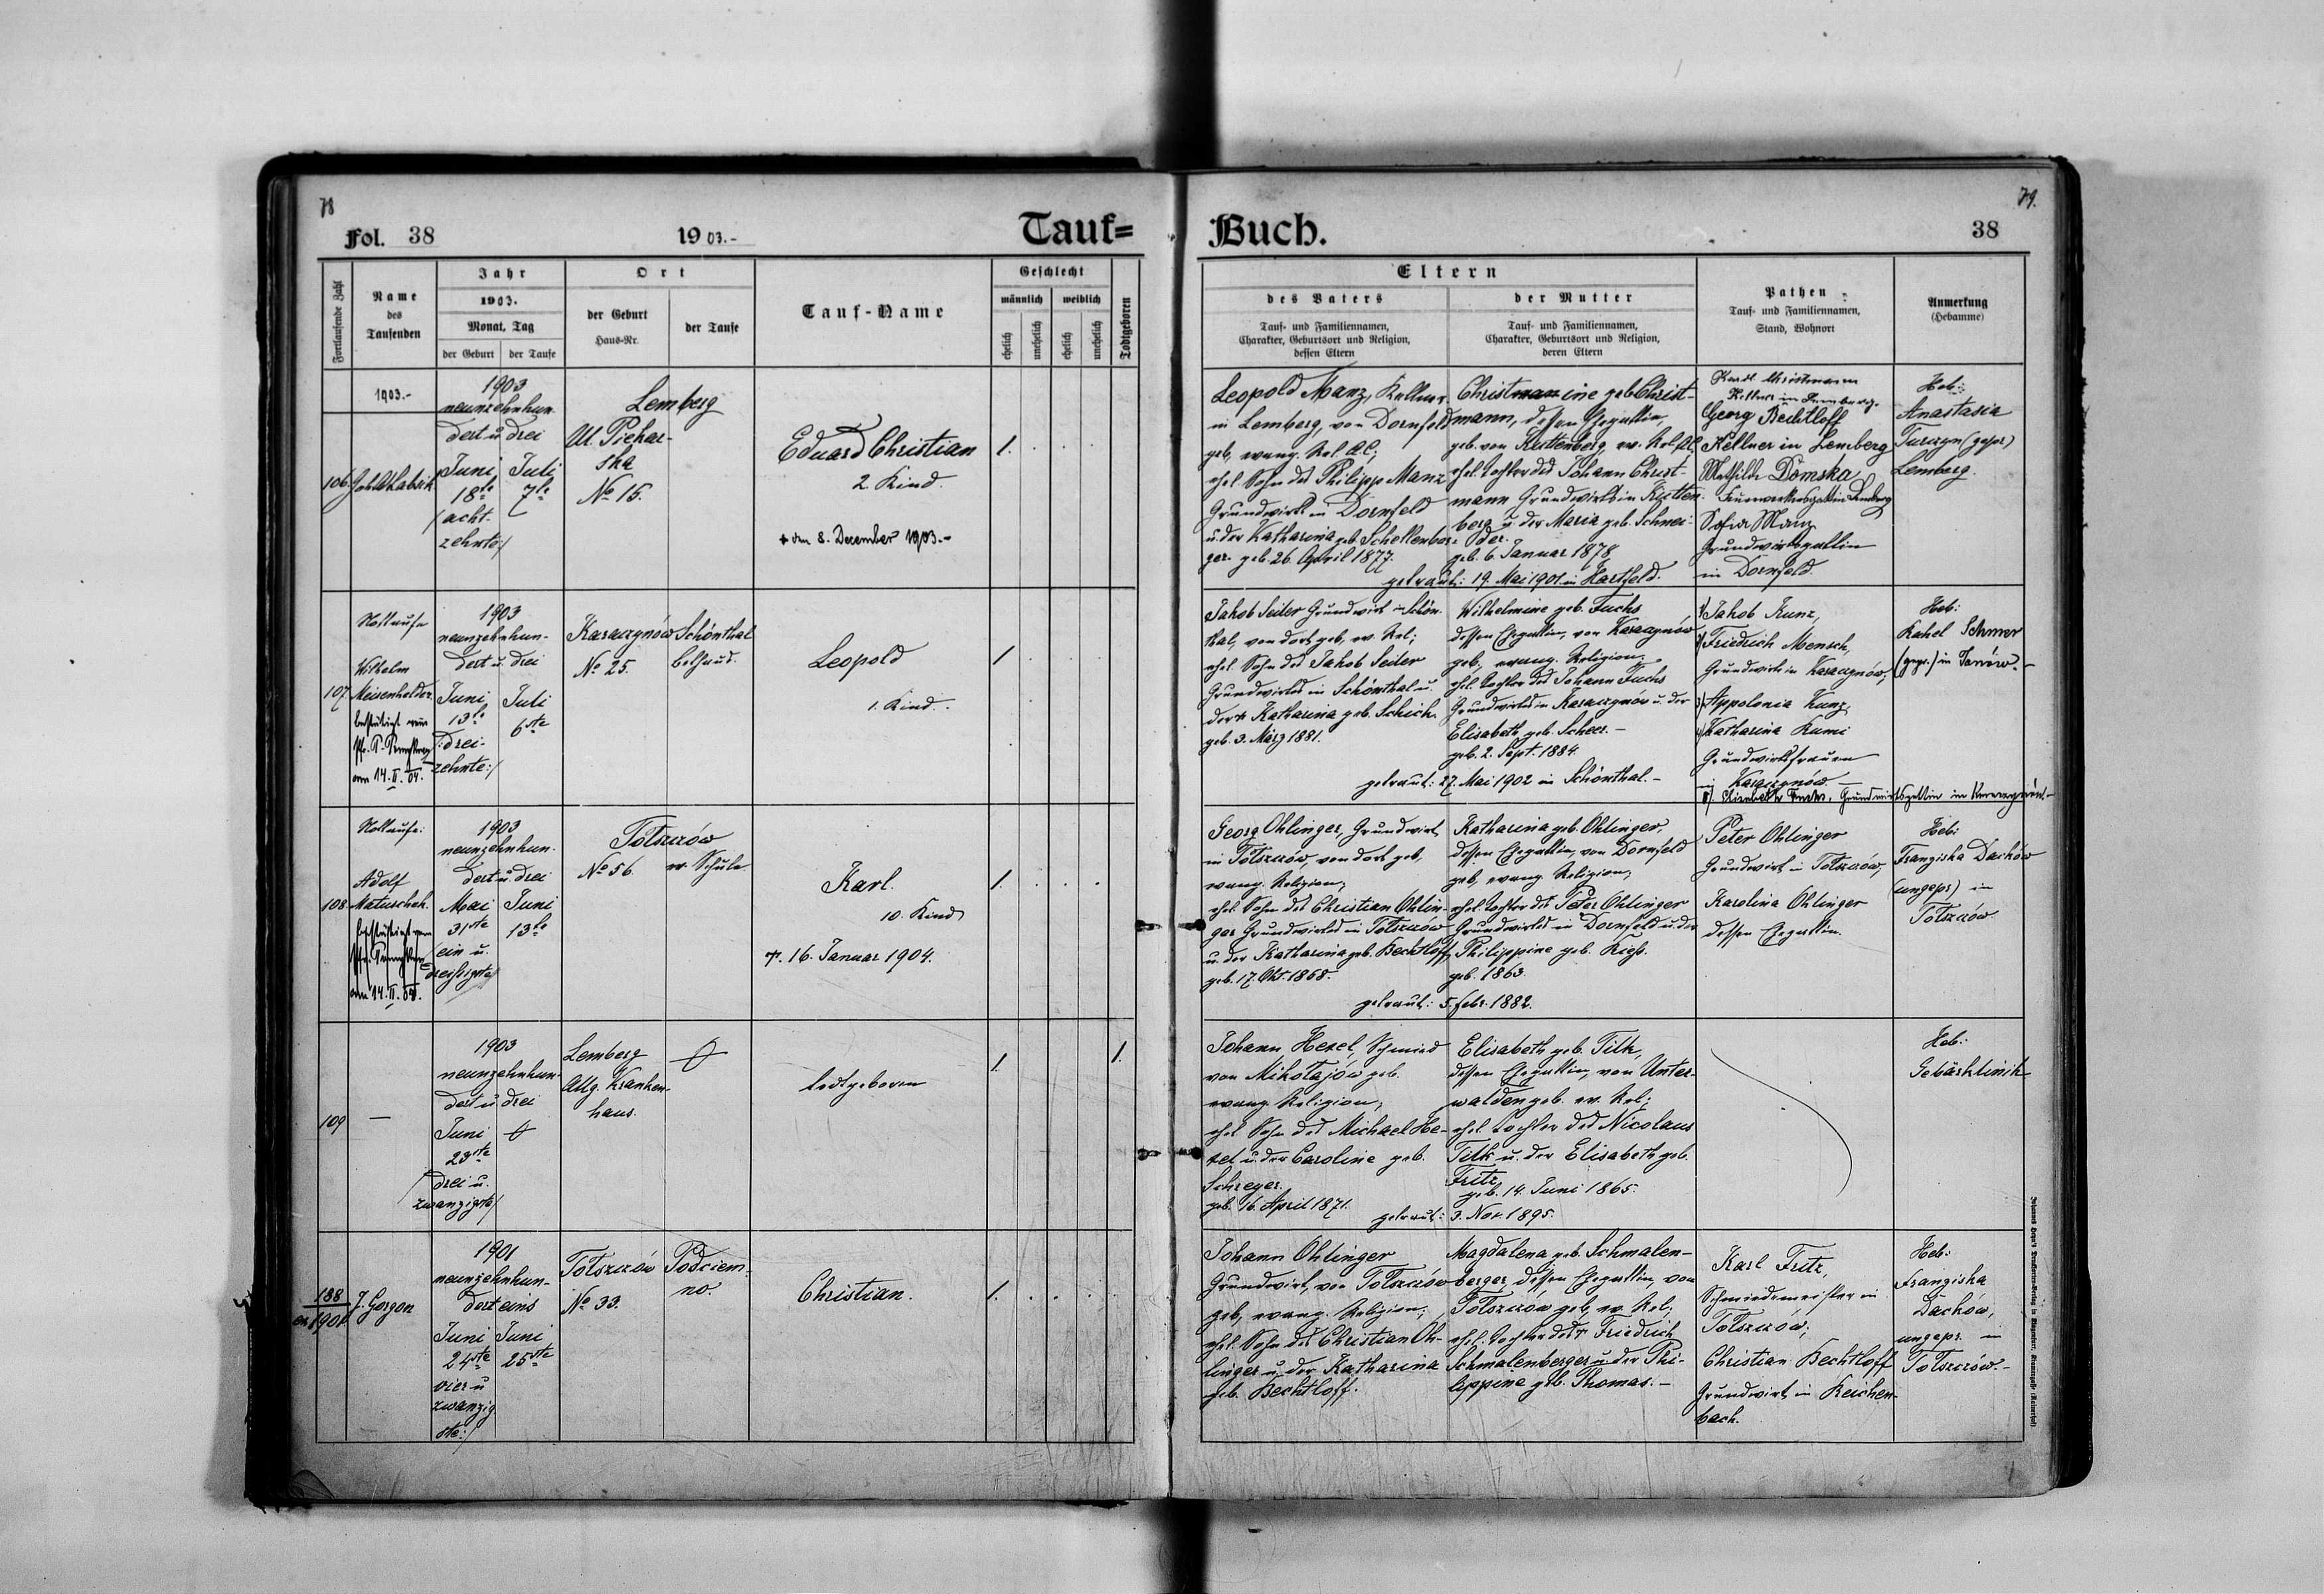 78
Fol. 38
1903.-
Tauf=
Buch.
79.
38
Fortlaufende Zahl
Name
des
Taufenden
Jahr
1903.
Monat, Tag
der Geburt
der Taufe
Ort
der Geburt
Haus-Nr.
der Taufe
Tauf-Name
Geschlecht
männlich
weiblich
ehelich
unehelich
ehelich
unehelich
Todtgeboren
Eltern
des Vaters
Tauf- und Familiennamen,
Charakter, Geburtsort und Religion,
dessen Eltern
der Mutter
Tauf- und Familiennamen,
Charakter, Geburtsort und Religion,
deren Eltern
Pathen
Tauf- und Familiennamen,
Stand, Wohnort
Anmerkung
(Hebamme)
1903.-
106.
1903
neunzehnhun-
dert u. drei
Juni
18te
/acht-
zehnte:/
Juli
7te
Lemberg
Ul. Piekar-
ska
No 15.
Eduard Christian
2. Kind.
+ den 8. December 1903.-
1.
Leopold Manz, Kellner
in Lemberg, von Dornfeld
geb, evang. Rel. AC;
ehel. Sohn des Philipp Manz
Grundwirts in Dornfeld
u. der Katharina geb. Schellenber-
ger. geb. 26. April 1877.
Christine geb. Christ-
mann, dessen Ehegattin,
geb. von Rottenberg, ev. Rel. AC,
ehel. Tochter des Johann Christ-
mann Grundwirts in Rotten-
berg u. der Maria geb. Schnei-
der.
geb. 6. Januar 1878
getraut: 19. Mai 1901 in Hartfeld.
Karl Christmann
Kellner in Lemberg.
Georg Bechtloff
Kellner in Lemberg
Mathilde Domska,
Lemberg
Sofia Manz
Grundwirtsgattin
in Dornfeld.
Heb:
Anastasia
Turczyn (gepr)
Lemberg.
107.
Nottaufe
Wilhelm
Meisenhelder
bestätigt vom
am 14. II. 04.
1903
neunzehnhun-
dert u. drei
Juni
13te
/:drei-
zehnte:/
Juli
6ste
Karaczynów
No 25.
Schönthal
Bethaus.
Leopold
1. Kind.
1
Jakob Seiler Grundwirt in Schön-
thal, von dort geb, ev. Rel;
ehel. Sohn des Jakob Seiler
Grundwirtes in Schönthal u.
der + Katharina geb. Schick.
geb. 3. März 1881.
Wilhelmine geb. Fuchs
dessen Ehegattin, von Karaczynów
geb, evang. Religion,
ehel. Tochter des Johann Fuchs
Grundwirtes in Karaczynów u. der
Elisabeth geb. Scheer.-
geb. 2. Sept. 1884.
getraut: 27. Mai 1902 in Schönthal.-
1/ Jakob Kunz,
2/ Friedrich Mensch,
Grundwirte in Karaczynów,
3/ Appolonia Kunz,
4/ Katharina Kumi
Grundwirtsfrauen
in Karaczynów.-
5/. Elisabeth Fuchs, Grundwirtsgattin in Karaczynów.-
Heb:
Rahel Schmer
(gepr.) in Janów.-
108.
Nottaufe:
Adolf
Matuschek.
bestätigt vom
am 14. II. 04.
1903
neunzehnhun-
dert u. drei
Mai
31ste
/ein u.
dreissigste/
Juni
13te
Tołszczów
No 56.
ev. Schule
Karl.
10. Kind
+. 16. Januar 1904.
1.
Georg Ohlinger, Grundwirt
in Tołszczów von dort geb,
evang. Religion;
ehel. Sohn des Christian Ohlin-
ger Grundwirtes in Tołszczów
u. der Katharina geb. Bechtloff,
geb. 17. Okt. 1858.
Katharina geb. Ohlinger,
dessen Ehegattin, von Dornfeld
geb, evang. Religion;
ehel. Tochter des Peter Ohlinger
Grundwirtes in Dornfeld u. der
Philippine geb. Kiehs.
geb. 1863.
getraut: 5. Febr. 1882.
Peter Ohlinger
Grundwirt in Tołszczów,
Karolina Ohlinger
dessen Ehegattin.
Heb:
Franziska Dachów
(ungepr) in
Tołszczów
109
1903
neunzehnhun-
dert u. drei
Juni
23ste
/drei u.
zwanzigste/
Lemberg
Allg. Kranken-
haus.
todtgeboren
1.
1.
Johann Hexel, Schmied
von Mikołajów geb.
evang. Religion;
ehel. Sohn des Michael He-
xel u. der Caroline geb.
Schreyer.
geb. 16. April 1871.
Elisabeth geb. Tilk,
dessen Ehegattin, von Unter-
walden geb. ev. Rel;
ehel. Tochter des Nicolaus
Tilk u. der Elisabeth geb.
Fritz
geb. 14. Juni 1865.
getraut: 3. Nov. 1895.
Heb:
Gebärklinik
188
ex 1901
J. Gorgon
1901
neunzehnhun-
dert eins
Juni
24ste
vier u
zwanzig
ste:/
Juni
25ste
Tołszczów
No 33.
Podciem-
no.
Christian.
1.
Johann Ohlinger
Grundwirt, von Tołszczów
geb, evang. Religion;
ehel. Sohn des Christian Oh-
linger u. der Katharina
geb. Bechtloff.
Magdalena geb. Schmalen-
berger, dessen Ehegattin von
Tołszczów geb, ev. Rel;
ehel. Tochter des + Friedrich
Schmalenberger u. der Phi-
lippine geb. Thomas.-
Karl Fritz,
Schmiedemeister in
Tołszczów;
Christian Bechtloff
Grundwirt in Reichen-
bach.
Heb:
Franziska
Dachów,
ungepr. in
Tołszczów.-